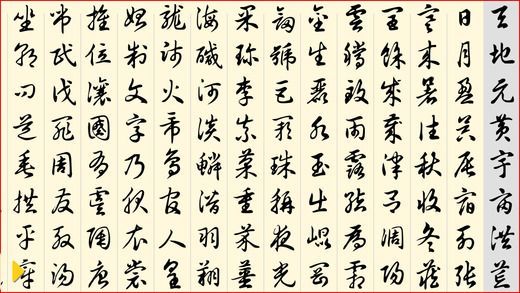 天地元黃宇宙洪荒
日月盈昃辰宿列張
寒來暑往秋收冬藏
閏餘成歲律呂調陽
雲騰致雨露結為霜
金生麗水玉出崐岡
劍號巨闕珠稱夜光
果珍李柰菜重芥薑
海鹹河淡鱗潛羽翔
龍師火帝鳥官人皇
始制文字乃服衣裳
推位讓國有虞陶唐
弔民伐罪周發殷湯
坐朝問道垂拱平章